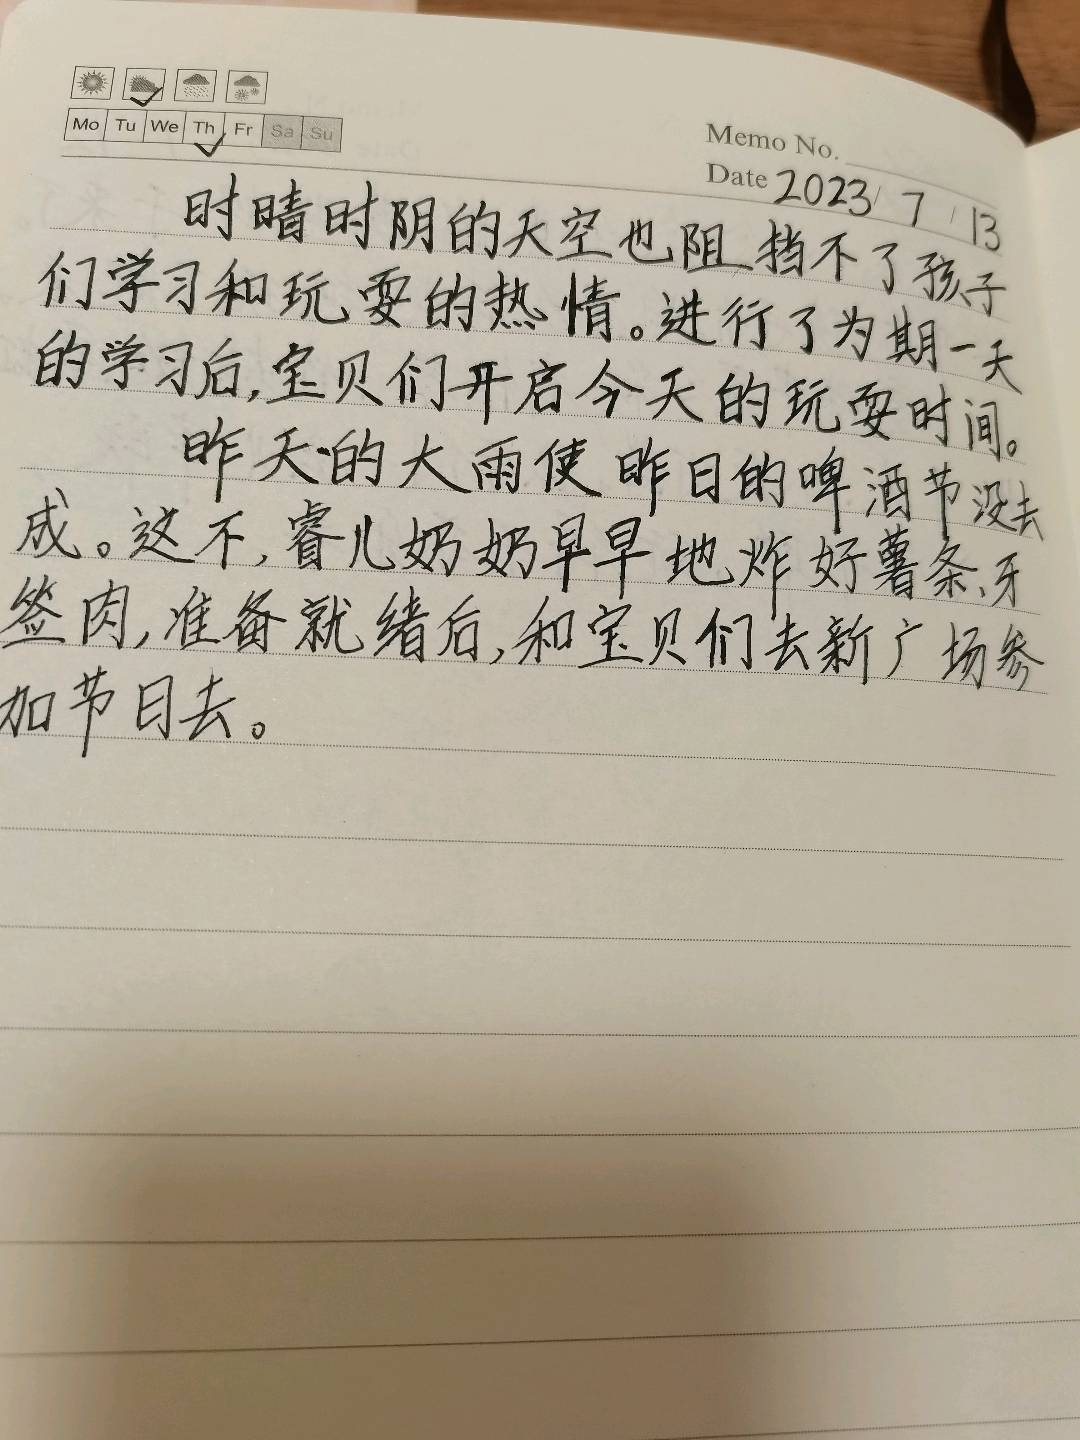 Mo Tu We Th Fr Sa Su
Memo No.
Date 2023/7/13
时晴时阴的天空也阻挡不了孩子
们学习和玩耍的热情。进行了为期一天
的学习后,宝贝们开启今天的玩耍时间。
昨天的大雨使昨日的啤酒节没去
成。这不,睿儿奶奶早早地炸好薯条、牙
签肉,准备就绪后,和宝贝们去新广场参
加节日去。